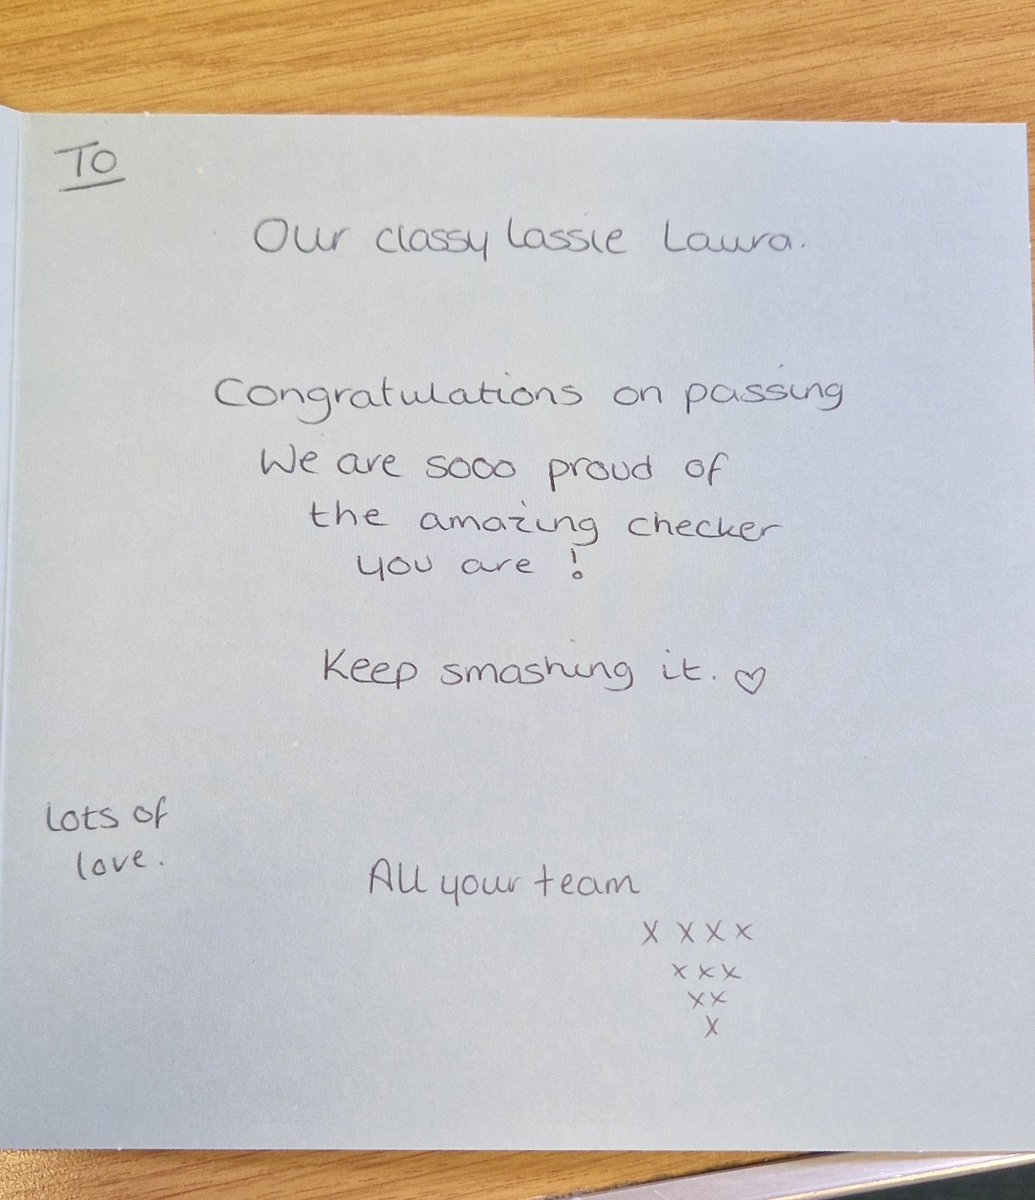 To
Our classy lassie Laura.
Congratulations on passing
We are sooo proud of
the amazing checker
you are !
Keep smashing it. ♡
Lots of
love.
All your team
x x x x
x x x
x x
x